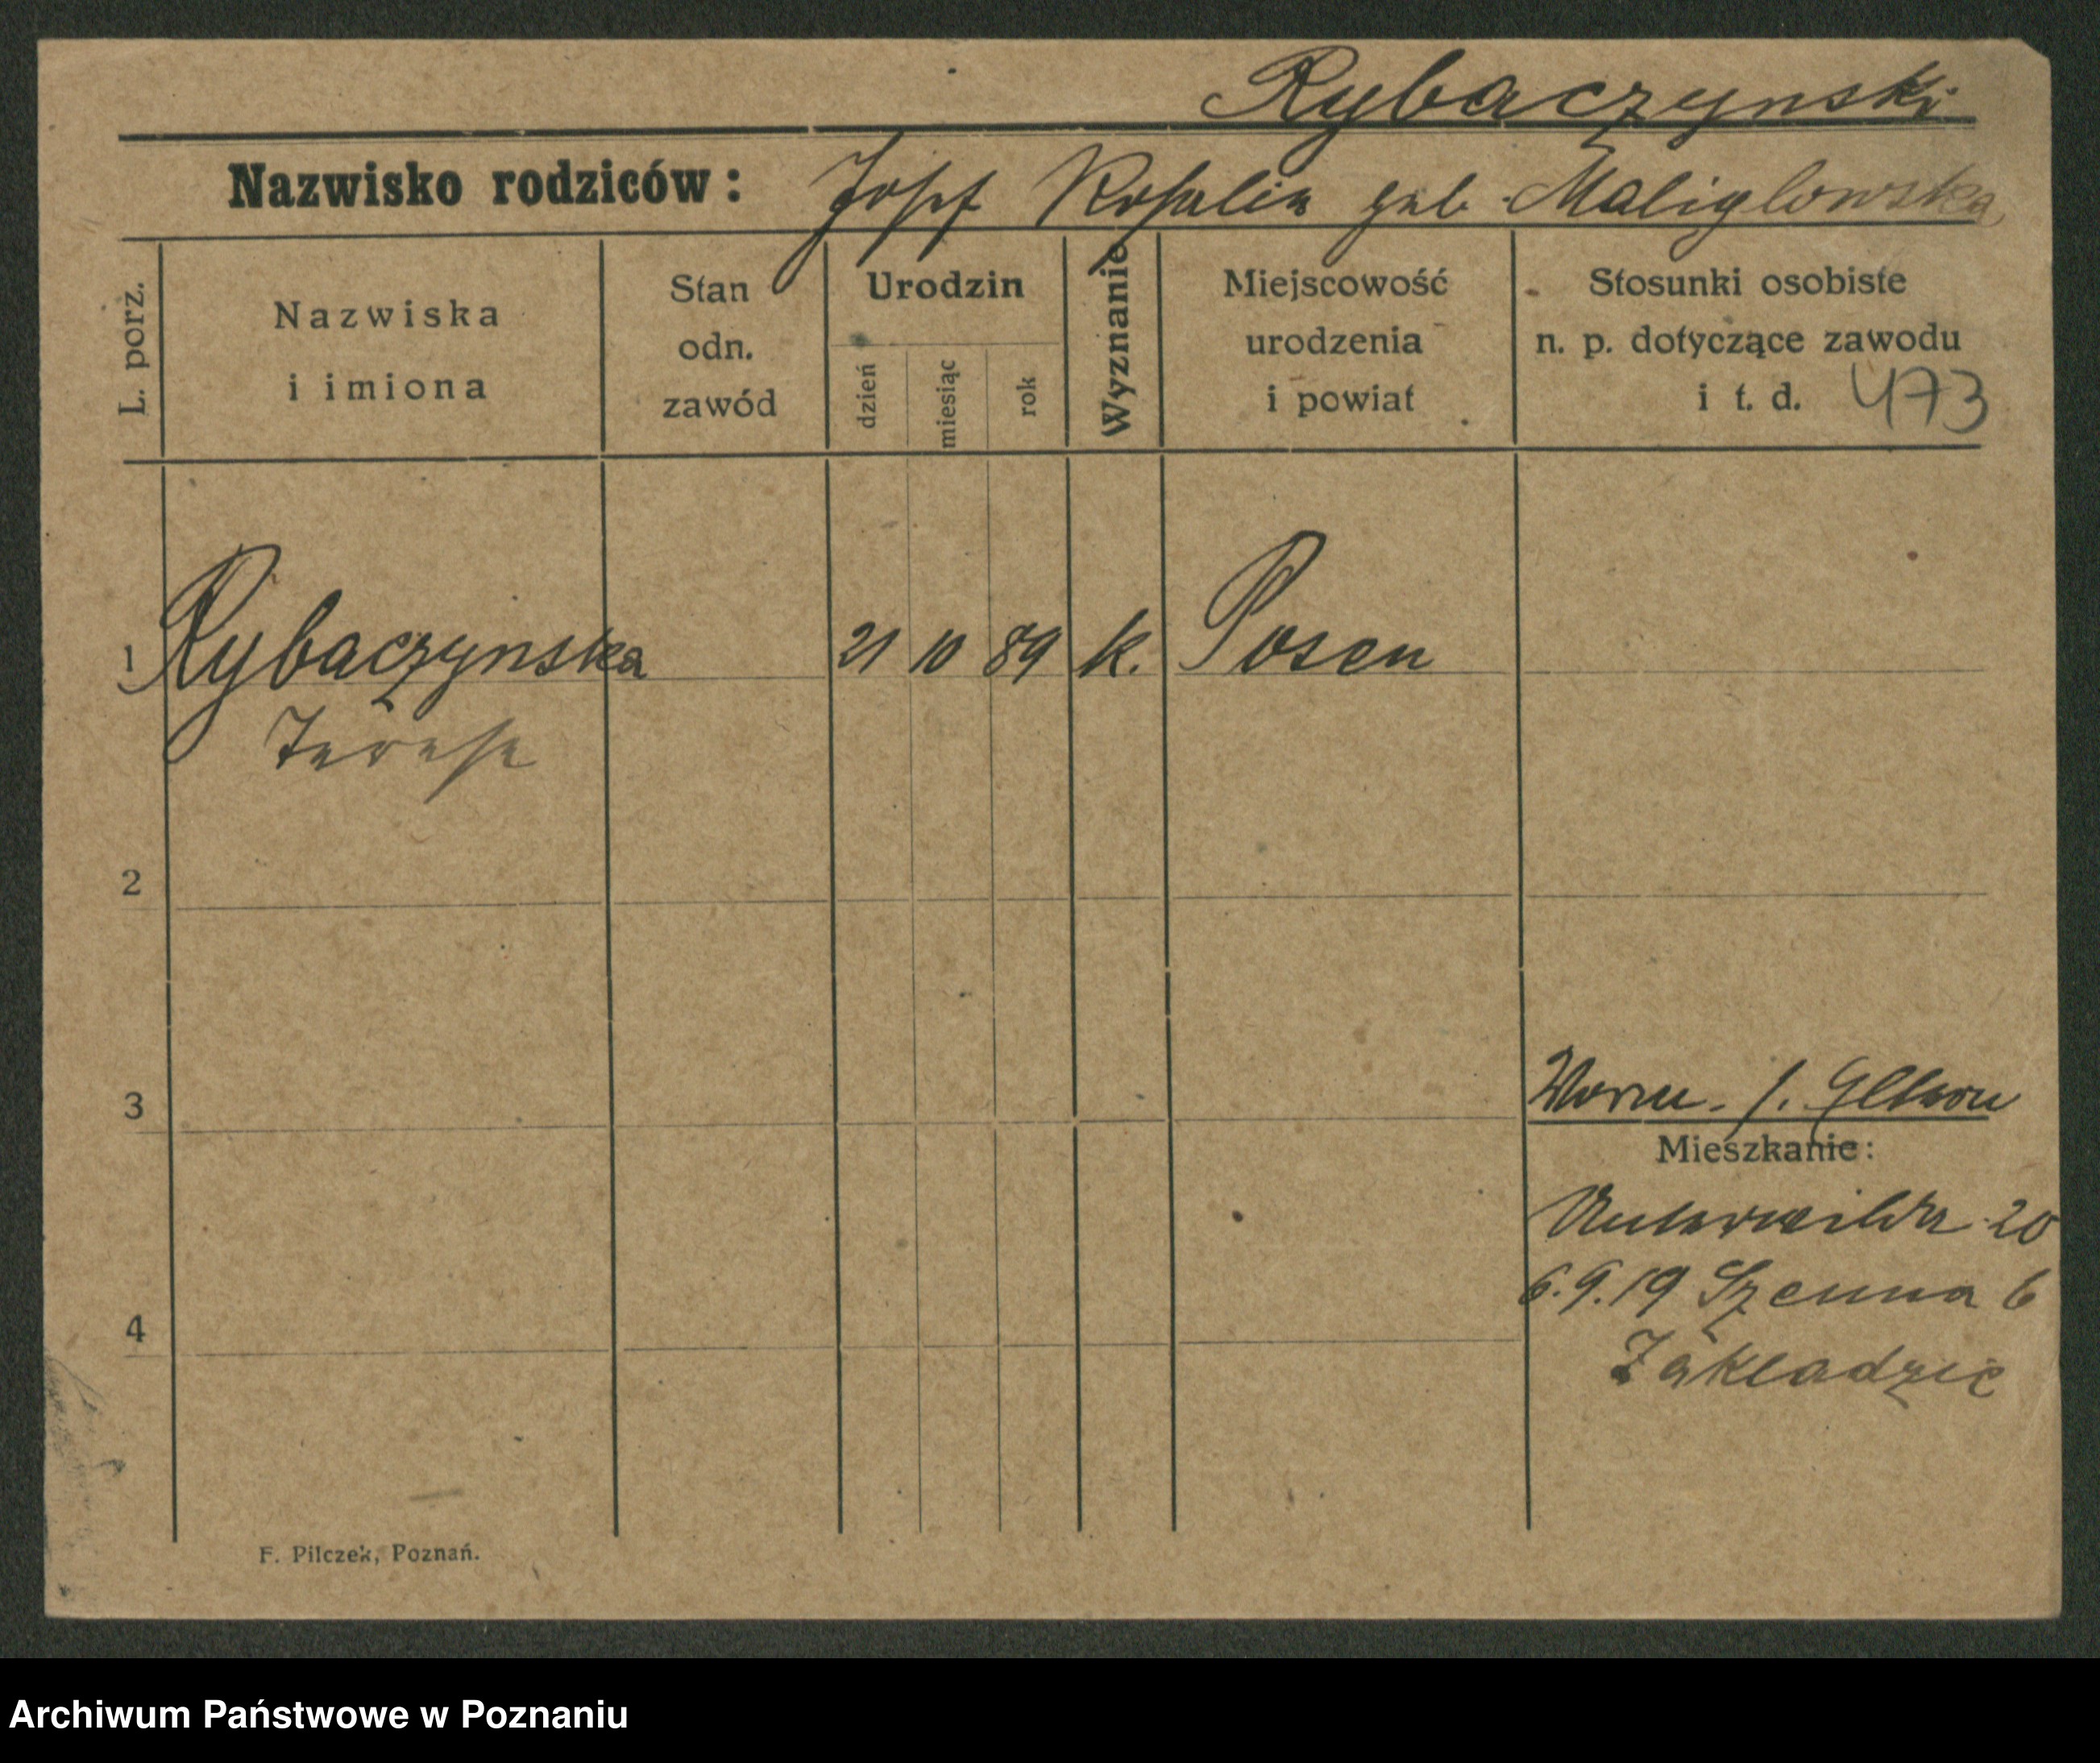 Rybaczynski
Nazwisko rodziców: Josef Rosalia geb. Maliglowska
L. porz.
Nazwiska
i imiona
Stan
odn.
zawód
Urodzin
dzień
miesiąc
rok
Wyznanie
Miejscowość
urodzenia
i powiat
Stosunki osobiste
n. p. dotyczące zawodu
i t. d. 473
1 Rybaczynska 21 10 89 k. Posen
Terese
2
3
Mieszkanie:
Unterwilda 20
6.9.19 6
4
F. Pilczek, Poznań.
Archiwum Państwowe w Poznaniu